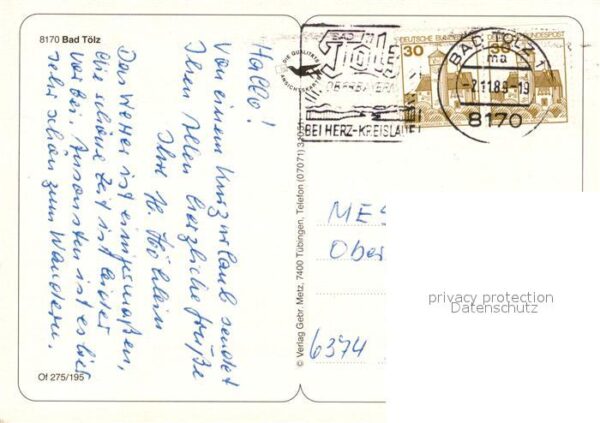 8170 Bad Tölz
Hallo!
Von einem Kurzurlaub sendet
Ihnen Allen herzliche Grüße
Ihre H.
Das Wetter ist einigermaßen,
die schöne Zeit ist leider
vorbei. Ansonsten ist es hier
sehr schön zum Wandern.
Of 275/195
© Verlag Gebr. Metz, 7400 Tübingen, Telefon (07071)
DIE QUALITÄTS
ANSICHTSKARTE
BAD
Tölz
OBERBAYERN
BEI HERZ-KREISLAUF
30
DEUTSCHE BUNDESPOST
30
BUNDESPOST
BAD TÖLZ 1
ma
-2.11.83-19
8170
MES
Ober
6374
privacy protection
Datenschutz